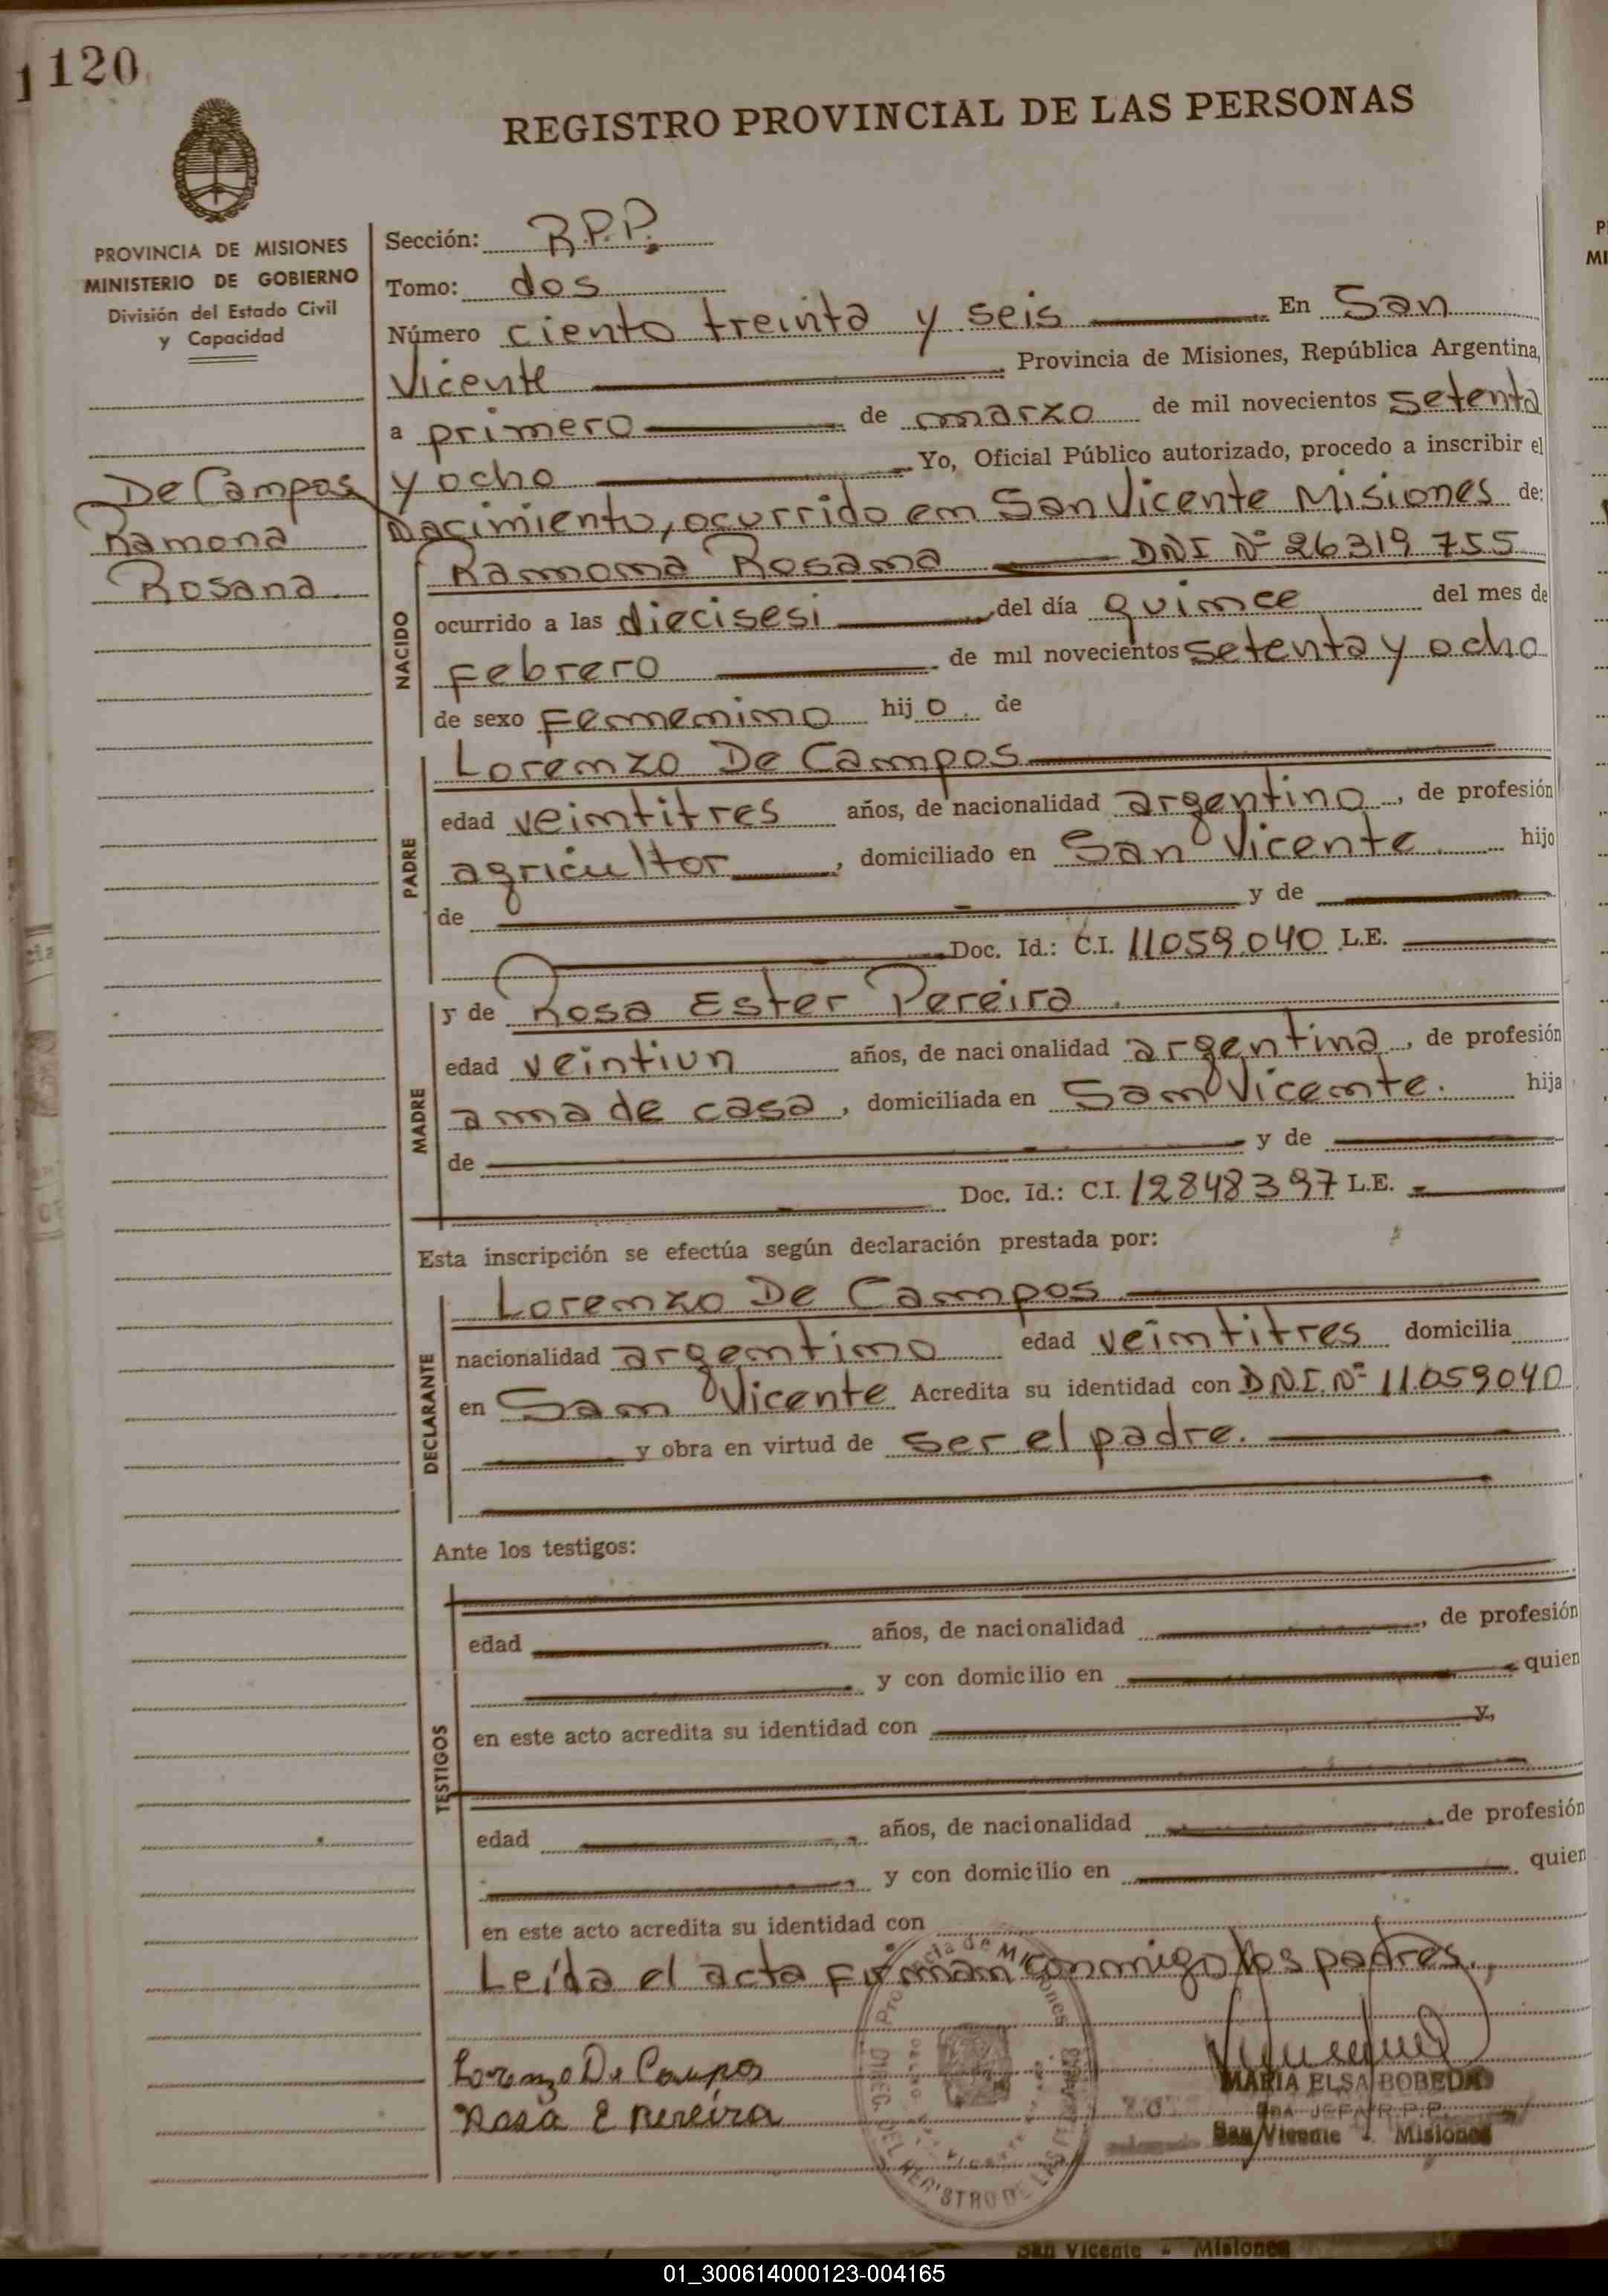 1120
REGISTRO PROVINCIAL DE LAS PERSONAS
PROVINCIA DE MISIONES
MINISTERIO DE GOBIERNO
División del Estado Civil
y Capacidad
De Campos
Ramona
Rosana.
Sección: R.P.P.
Tomo: dos
Número ciento treinta y seis En San
Vicente Provincia de Misiones, República Argentina,
a primero de marzo de mil novecientos setenta
y ocho Yo, Oficial Público autorizado, procedo a inscribir el
Nacimiento, ocurrido en San Vicente Misiones de:
NACIDO
Ramona Rosana DNI Nº 26319755
ocurrido a las diecisesi del día quince del mes de
Febrero de mil novecientos setenta y ocho
de sexo Femenino hij o. de
PADRE
Lorenzo De Campos
edad veintitres años, de nacionalidad argentino, de profesión
agricultor, domiciliado en San Vicente. hijo
de y de
Doc. Id.: C.I. 11059.040 L.E.
MADRE
y de Rosa Ester Pereira.
edad veintiun años, de nacionalidad argentina, de profesión
ama de casa, domiciliada en San Vicente. hija
de y de
Doc. Id.: C.I. 12848397 L.E.
Esta inscripción se efectúa según declaración prestada por:
DECLARANTE
Lorenzo De Campos
nacionalidad argentino edad veintitres domicilia
en San Vicente Acredita su identidad con D.N.I. Nº 11.059040
y obra en virtud de ser el padre.
Ante los testigos:
TESTIGOS
edad años, de nacionalidad, de profesión
y con domicilio en quien
en este acto acredita su identidad con y,
edad años, de nacionalidad de profesión
y con domicilio en quien
en este acto acredita su identidad con
Leída el acta firman conmigo los padres.,
Lorenzo De Campos
Rosa E Pereira
Provincia de Misiones
DIREC. DEL REGISTRO DE LAS PERSONAS
MARIA ELSA BOBEDA
JEFA R.P.P.
San Vicente - Misiones
San Vicente - Misiones
01_300614000123-004165